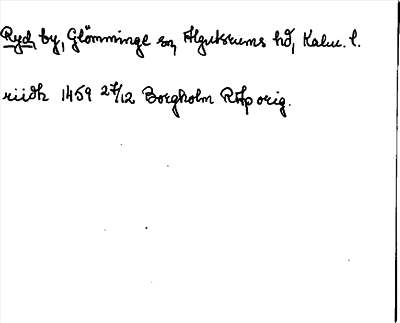 Ryd, by, Glömminge sn, Algutsrums hd, Kalm. l.
riidh 1459 27/12 Borgholm RAp orig.